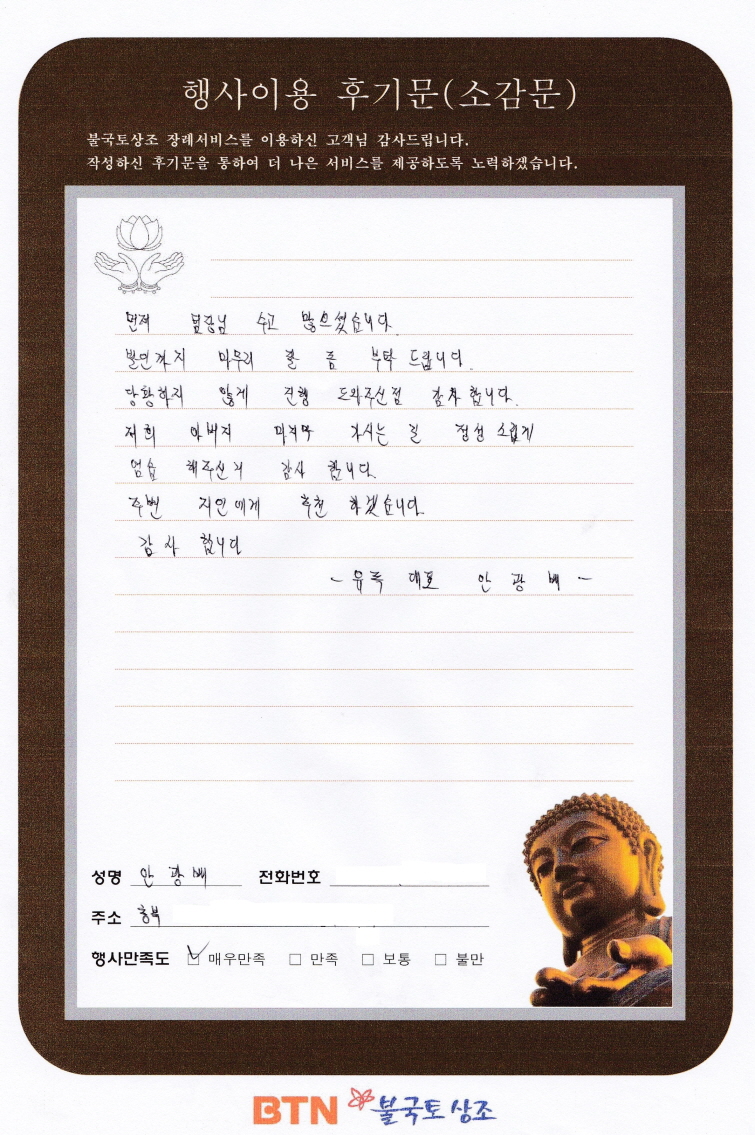 행사이용 후기문(소감문)
불국토상조 장례서비스를 이용하신 고객님 감사드립니다.
작성하신 후기문을 통하여 더 나은 서비스를 제공하도록 노력하겠습니다.
먼저 팀장님 수고 많으셨습니다.
발인까지 마무리 잘 좀 부탁 드립니다.
당황하지 않게 진행 도와주신점 감사 합니다.
저희 아버지 마지막 가시는 길 정성 스럽게
염습 해주신거 감사 합니다.
주변 지인에게 추천 하겠습니다.
감사 합니다
~ 유족 대표 안광배 ~
성명 안광배 전화번호
주소 충북
행사만족도 매우만족 만족 보통 불만
BTN 불국토상조